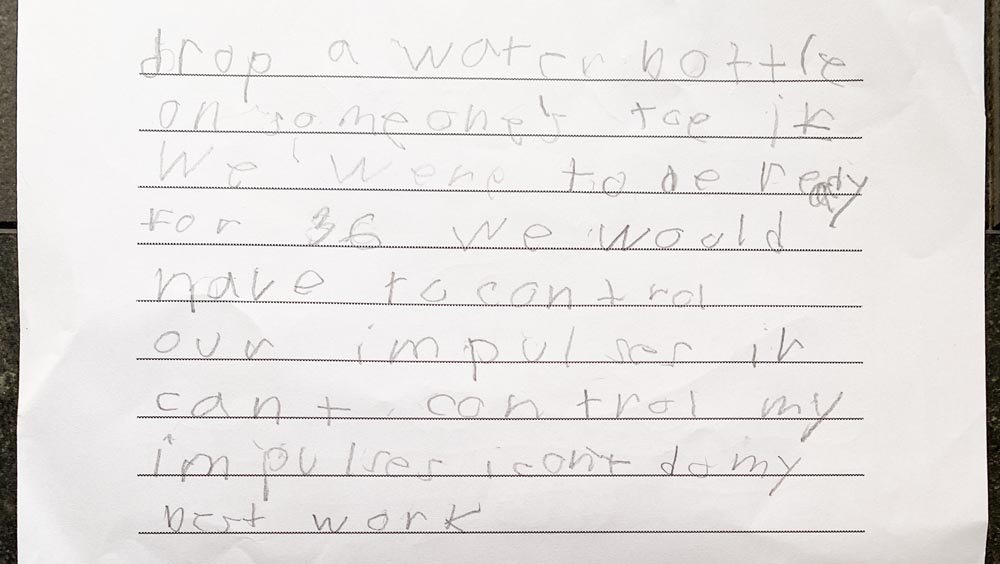 drop a water bottle
on someone's toe if
We were to be ready
for 36 we would
have to control
our impulses if
can't control my
impulses i cont do my
best work